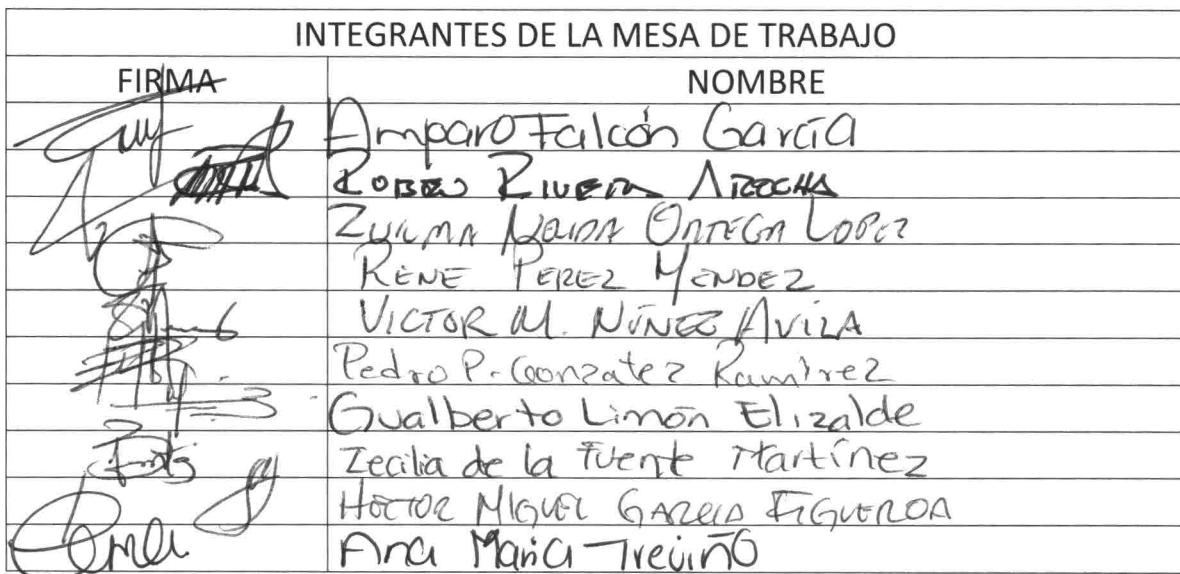 INTEGRANTES DE LA MESA DE TRABAJO
FIRMA NOMBRE
Amparo Falcón García
RUBEN RIVERA AROCHA
ZULMA NOLIDA ORTEGA LOPEZ
RENE PEREZ MENDEZ
VICTOR M. NÚNEZ AVILA
Pedro P. Gonzalez Ramírez
Gualberto Limón Elizalde
Cecilia de la Fuente Martínez
HECTOR MIGUEL GARCIA FIGUEROA
Ana Maria Treviño